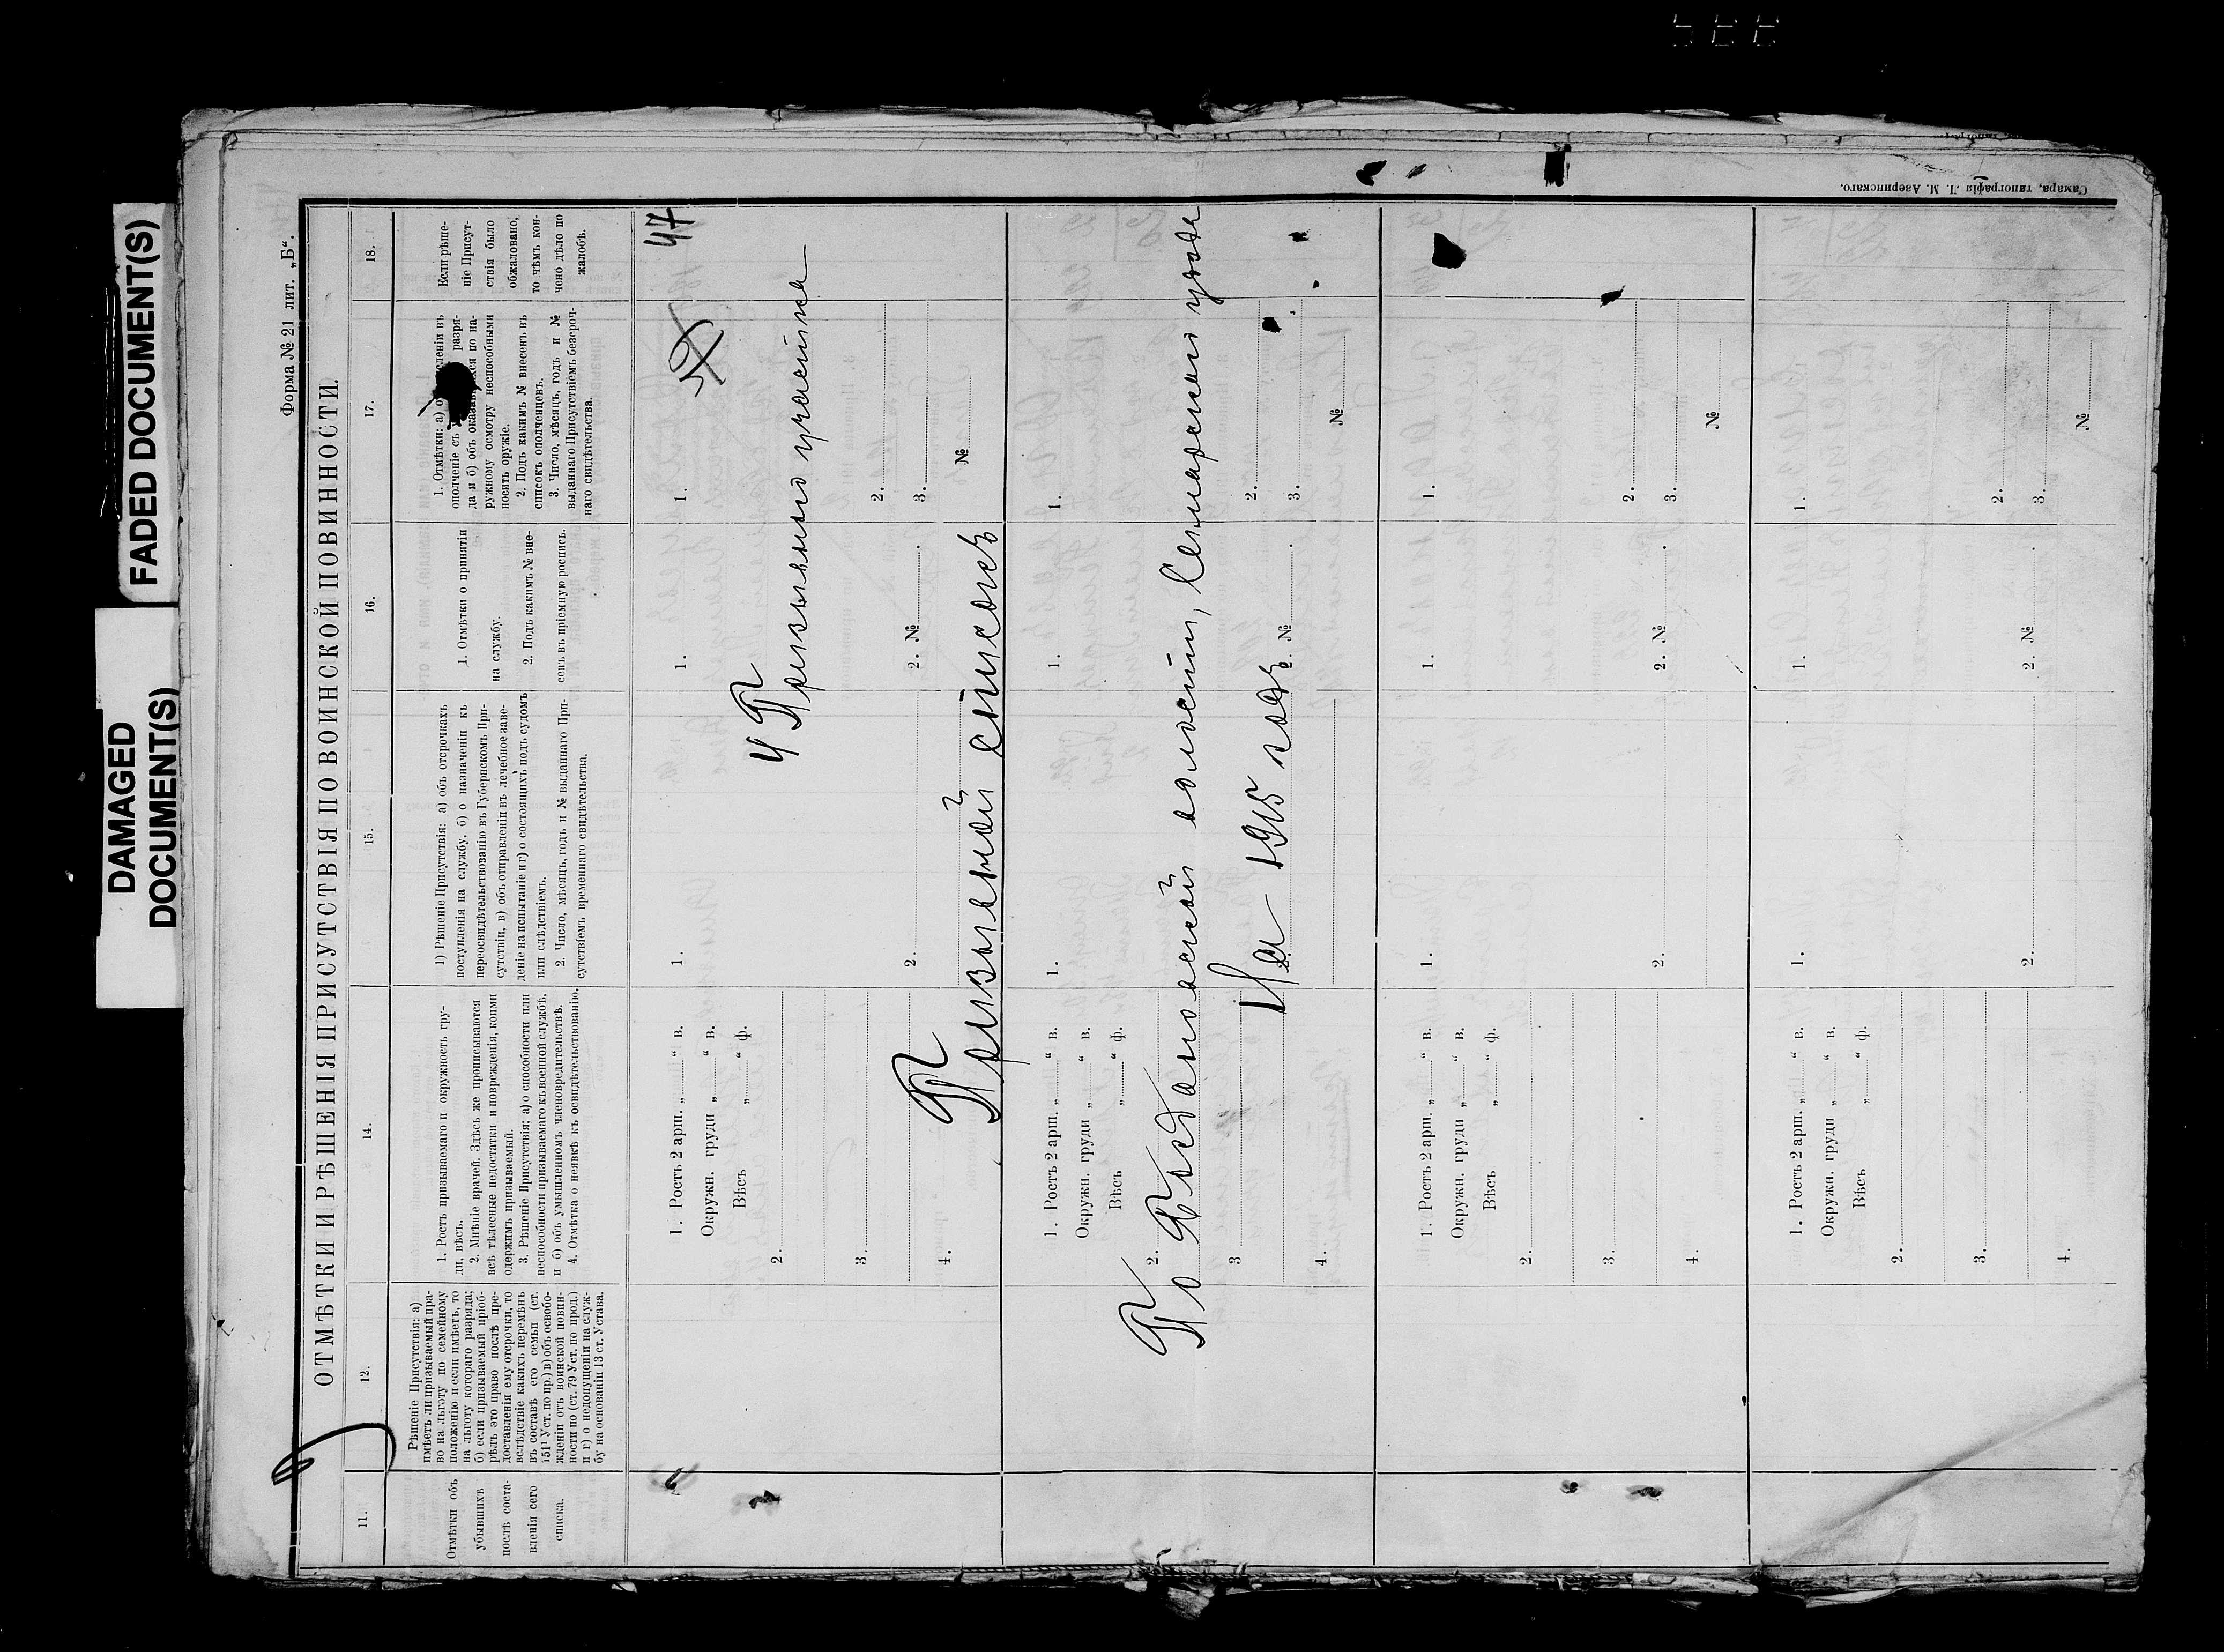 FADED DOCUMENT(S)
DAMAGED
DOCUMENT(S)
Форма № 21 лит. „Б“.
ОТМѢТКИ И РѢШЕНІЯ ПРИСУТСТВІЯ ПО ВОИНСКОЙ ПОВИННОСТИ.
11.
12.
14.
15.
16.
17.
18.
Отмѣтки объ
убывшихъ
послѣ соста-
вленія сего
списка.
Рѣшеніе Присутствія: а)
имѣетъ ли призываемый пра-
во на льготу по семейному
положенію и если имѣетъ, то
на льготу котораго разряда;
б) если призываемый пріоб-
рѣлъ это право послѣ пре-
доставленія ему отсрочки, то
вслѣдствіе какихъ перемѣнъ
въ составѣ его семьи (ст.
151¹ Уст. по пр.) в) объ освобо-
жденіи отъ воинской повин-
ности по (ст. 79 Уст. по прод.)
и г) о недопущеніи на служ-
бу на основаніи 13 ст. Устава.
1. Ростъ призываемаго и окружность гру-
ди, вѣсъ.
2. Мнѣніе врачей. Здѣсь же прописываются
всѣ тѣлесные недостатки и поврежденія, коими
одержимъ призываемый.
3. Рѣшеніе Присутствія: а) о способности или
неспособности призываемаго къ военной службѣ,
и б) объ умышленномъ членовредительствѣ.
4. Отмѣтка о неявкѣ къ освидѣтельствованію.
1) Рѣшеніе Присутствія: а) объ отсрочкахъ
поступленія на службу, б) о назначеніи къ
переосвидѣтельствованію въ Губернскомъ При-
сутствіи, в) объ отправленіи въ лечебное заве-
деніе на испытаніе и г) о состоящихъ подъ судомъ
или слѣдствіемъ.
2. Число, мѣсяцъ, годъ и № выданнаго При-
сутствіемъ временнаго свидѣтельства.
1. Отмѣтки о принятіи
на службу.
2. Подъ какимъ № вне-
сенъ въ пріемную роспись.
1. Отмѣтки: а) о сленіи въ
ополченіе съ разря-
да и б) объ оказавшихся по на-
ружному осмотру неспособными
носить оружіе.
2. Подъ какимъ № внесенъ въ
списокъ ополченцевъ.
3. Число, мѣсяцъ, годъ и №
выданнаго Присутствіемъ безсроч-
наго свидѣтельства.
Если рѣше-
ніе Присут-
ствія было
обжаловано,
то чѣмъ кон-
чено дѣло по
жалобѣ.
47
1. Ростъ 2 арш. „ “ в.
Окружн. груди „ “ в.
Вѣсъ „ “ ф.
2.
3.
4.
1.
2.
1.
2. №
1.
2.
3.
№
4 Призывного участка
Призывной списокъ
1. Ростъ 2 арш. „ “ в.
Окружн. груди „ “ в.
Вѣсъ „ “ ф.
2.
3
4.
1.
2.
1.
2. №
1.
2.
3.
№
По Богдановской волости, Самарскаго уѣзда
На 1915 годъ
1. Ростъ 2 арш. „ “ в.
Окружн. груди „ “ в.
Вѣсъ „ “ ф.
2.
3.
4.
1.
2.
1.
2. №
1.
2.
3.
№
1. Ростъ 2 арш. „ “ в.
Окружн. груди „ “ в.
Вѣсъ „ “ ф.
2.
3.
4.
1.
2.
1.
2. №
1.
2.
3.
№
Самара, типографія Л. М. Азеринскаго.